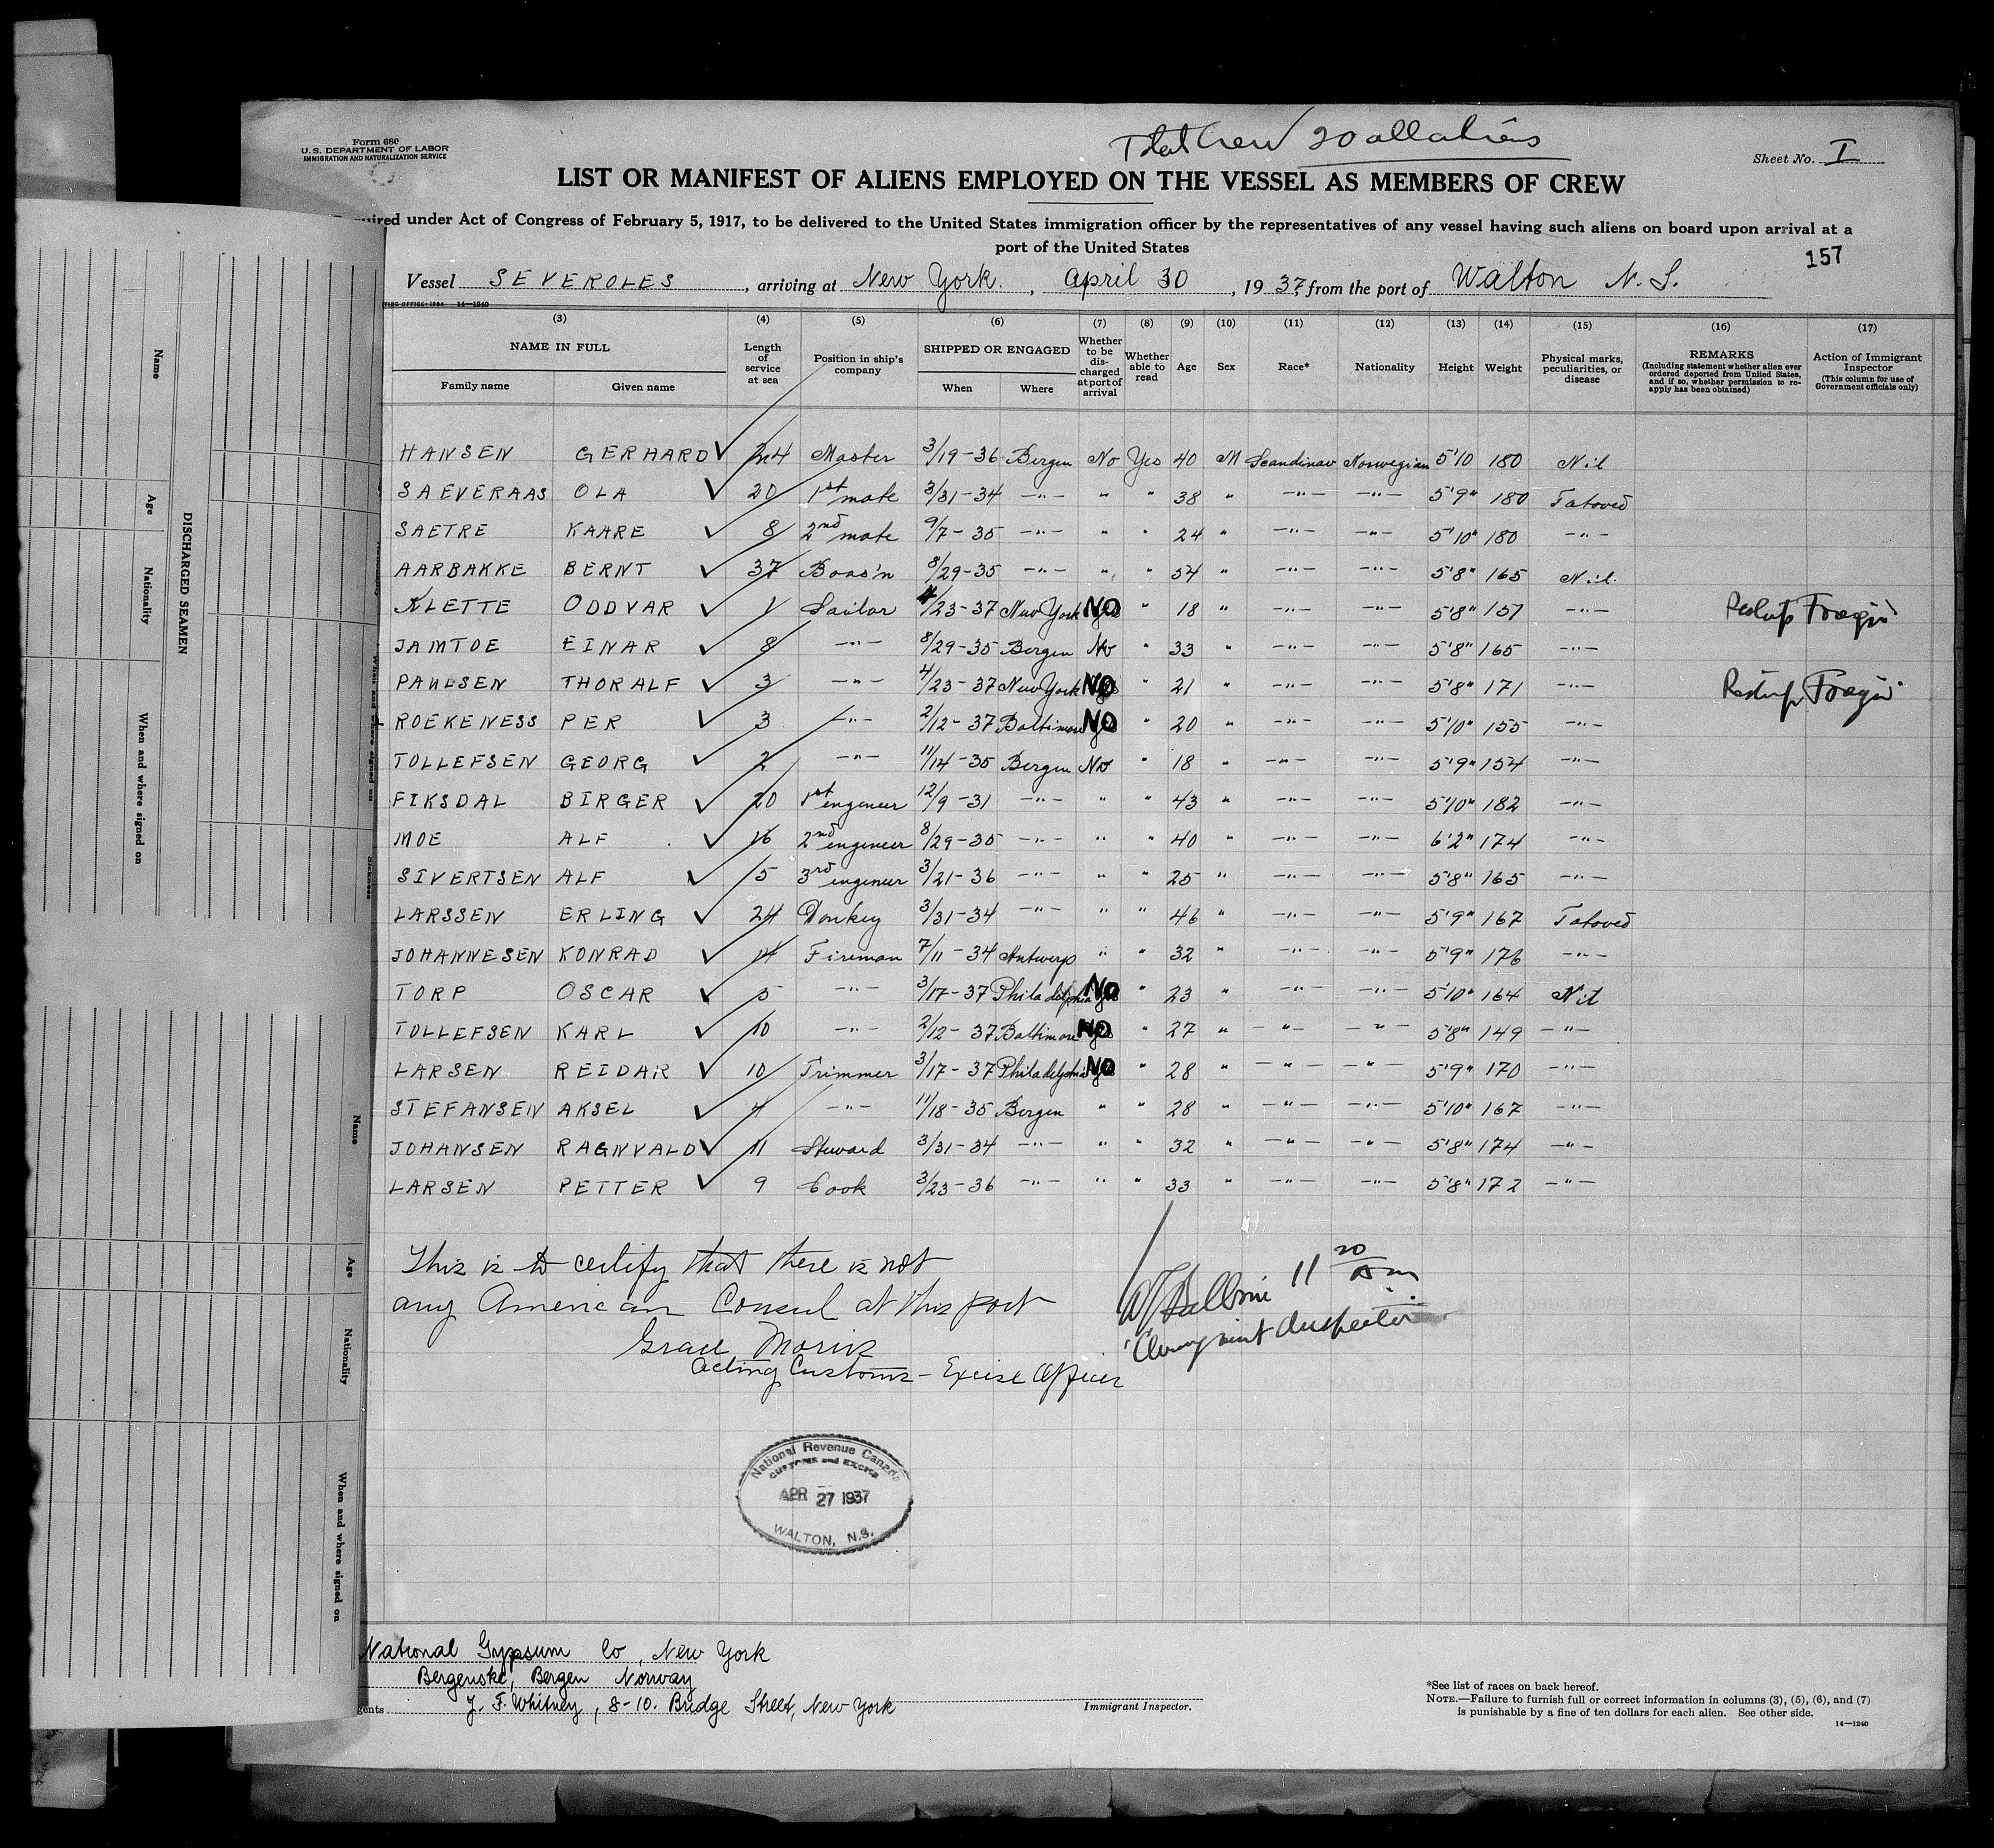 Form 680
U. S. DEPARTMENT OF LABOR
IMMIGRATION AND NATURALIZATION SERVICE
Total Crew 20 all aliens
Sheet No. I
LIST OR MANIFEST OF ALIENS EMPLOYED ON THE VESSEL AS MEMBERS OF CREW
under Act of Congress of February 5, 1917, to be delivered to the United States immigration officer by the representatives of any vessel having such aliens on board upon arrival at a
port of the United States
157
Vessel SEVEROLES, arriving at New York, April 30, 1937, from the port of Walton N. S.
14—1240
(3) (4) (5) (6) (7) (8) (9) (10) (11) (12) (13) (14) (15) (16) (17)
NAME IN FULL Family name Given name Length of service at sea Position in ship's company SHIPPED OR ENGAGED When Where Whether to be discharged at port of arrival Whether able to read Age Sex Race* Nationality Height Weight Physical marks, peculiarities, or disease REMARKS (Including statement whether alien ever ordered deported from United States, and if so, whether permission to re-apply has been obtained) Action of Immigrant Inspector (This column for use of Government officials only)
HANSEN GERHARD ✓ 24 Master 3/19-36 Bergen No Yes 40 M Scandinav Norwegian 5'10 180 Nil
SAEVERAAS OLA ✓ 20 1st mate 3/31-34 -"- " " 38 " -"- -"- 5'9" 180 Tatoved
SAETRE KAARE ✓ 8 2nd mate 9/7-35 -"- " " 24 " -"- -"- 5'10" 180 -"-
AARBAKKE BERNT ✓ 37 Boas'n 8/29-35 -"- " " 54 " -"- -"- 5'8" 165 Nil
KLETTE ODDVAR ✓ 1 Sailor 4/23-37 New York NO " 18 " -"- -"- 5'8" 157 -"-
JAMTOE EINAR ✓ 8 -"- 8/29-35 Bergen No " 33 " -"- -"- 5'8" 165 -"-
PAULSEN THORALF ✓ 3 -"- 4/23-37 New York NO " 21 " -"- -"- 5'8" 171 -"-
ROEKENESS PER ✓ 3 -"- 2/12-37 Baltimore NO " 20 " -"- -"- 5'10" 155 -"-
TOLLEFSEN GEORG ✓ 2 -"- 11/14-35 Bergen No " 18 " -"- -"- 5'9" 154 -"-
FIKSDAL BIRGER ✓ 20 1st engeneer 12/9-31 -"- " " 43 " -"- -"- 5'10" 182 -"-
MOE ALF ✓ 16 2nd engineer 8/29-35 -"- " " 40 " -"- -"- 6'2" 174 -"-
SIVERTSEN ALF ✓ 5 3rd engeneer 3/21-36 -"- " " 25 " -"- -"- 5'8" 165 -"-
LARSSEN ERLING ✓ 24 Donkey 3/31-34 -"- " " 46 " -"- -"- 5'9" 167 Tatoved
JOHANNESEN KONRAD ✓ 14 Fireman 7/11-34 Antwerp " " 32 " -"- -"- 5'9" 176 -"-
TORP OSCAR ✓ 5 -"- 3/17-37 Philadelphia NO " 23 " -"- -"- 5'10" 164 Nil
TOLLEFSEN KARL ✓ 10 -"- 2/12-37 Baltimore NO " 27 " -"- -"- 5'8" 149 -"-
LARSEN REIDAR ✓ 10 Trimmer 3/17-37 Philadelphia NO " 28 " -"- -"- 5'9" 170 -"-
STEFANSEN AKSEL ✓ 4 -"- 11/18-35 Bergen " " 28 " -"- -"- 5'10" 167 -"-
JOHANSEN RAGNVALD ✓ 11 Steward 3/31-34 -"- " " 32 " -"- -"- 5'8" 174 -"-
LARSEN PETTER ✓ 9 Cook 3/23-36 -"- " " 33 " -"- -"- 5'8" 172 -"-
This is to certify that there is not
any American Consul at this port
Acting Customs - Excise Officer
11 20 am
Inspector
National Revenue Canada
CUSTOMS and EXCISE
APR 27 1937
WALTON, N.S.
National Gypsum Co, New York
Bergenske, Bergen Norway
gents J. F. Whitney, 8-10. Bridge Street, New York
Immigrant Inspector.
*See list of races on back hereof.
NOTE.—Failure to furnish full or correct information in columns (3), (5), (6), and (7)
is punishable by a fine of ten dollars for each alien. See other side.
14—1240
Name
Age
Nationality
When and where signed on
DISCHARGED SEAMEN
Name
Age
Nationality
When and where signed on